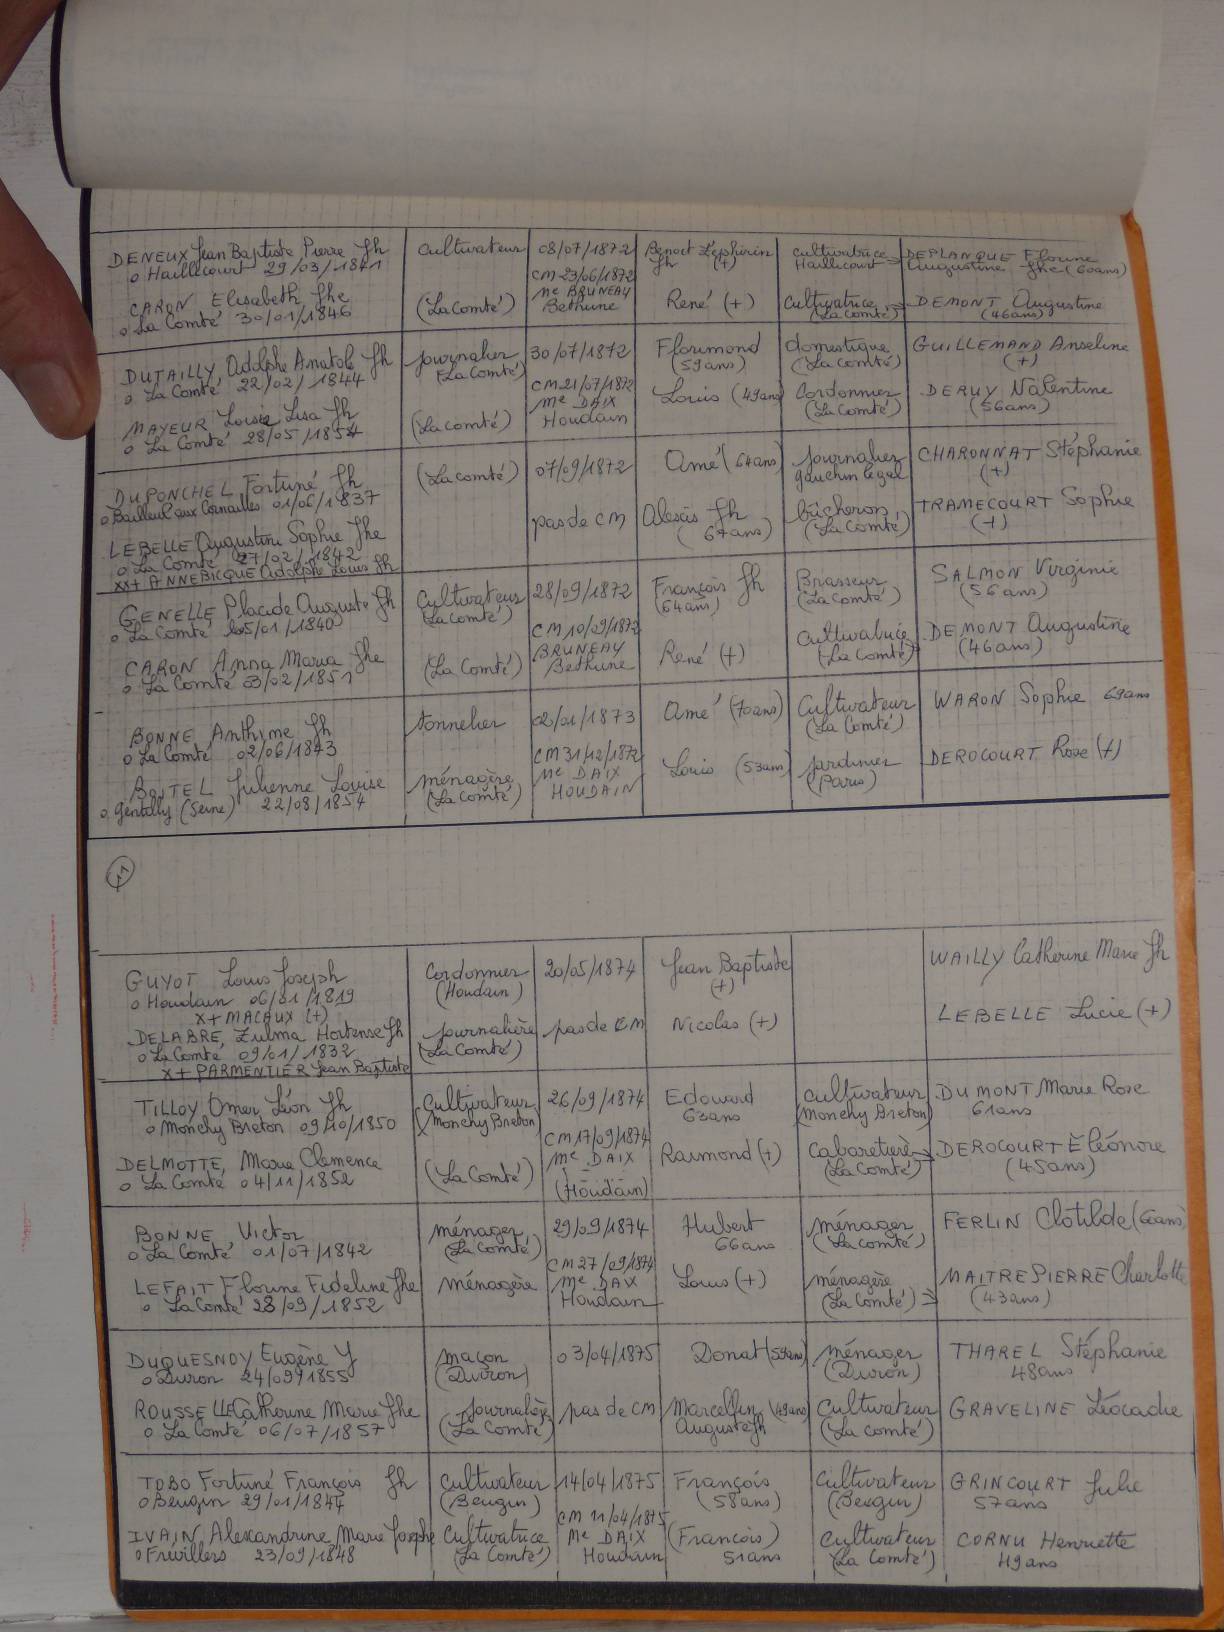 DENEUX Jean Baptiste Pierre Jh cultivateur 08/07/1872 Benoît Zéphirin cultivatrice → DEPLANQUE Florine
o Haillicourt 29/03/1841 CM 23/06/1872 Jh (+) Haillicourt Augustine Jhe (60ans)
CARON Elisabeth Jhe (La Comté) Me BRUNEAU René (+) Cultivatrice → DEMONT Augustine
o La Comté 30/01/1846 Bethune (La Comté) (46ans)
DUTAILLY Adolphe Anatole Jh journalier 30/07/1872 Florimond domestique GUILLEMAND Anseline
o La Comté 22/02/1844 (La Comté) CM 21/07/1872 (59ans) (La Comté) (+)
MAYEUR Louise Lisa Jh (La Comté) Me DAIX Louis (49ans) Cordonnier DERUY Valentine
o La Comté 28/05/1854 Houdain (La Comté) (56ans)
DUPONCHEL Fortuné Jh (La Comté) 07/09/1872 Amé (64ans) journalier CHARONNAT Stéphanie
o Bailleul aux Cornailles 01/06/1837 gauchin legal (+)
LEBELLE Augustine Sophie Jhe pas de CM Alexis Jh bûcheron TRAMECOURT Sophie
o La Comté 27/02/1842 (67ans) (La Comté) (+)
xx+ ANNEBICQUE Adolphe Louis Jh
GENELLE Placide Auguste Jh Cultivateur 28/09/1872 François Jh Brasseur SALMON Virginie
o La Comté 05/01/1840 (La Comté) CM 10/09/1872 (64ans) (La Comté) (56ans)
CARON Anna Maria Jhe (La Comté) BRUNEAU René (+) cultivatrice → DEMONT Augustine
o La Comté 03/02/1851 Bethune (La Comté) (46ans)
BONNE Anthime Jh tonnelier 02/01/1873 Amé (70ans) Cultivateur WARON Sophie 69ans
o La Comté 02/06/1843 CM 31/12/1872 (La Comté)
BOITEL Julienne Louise ménagère Me DAIX Louis (53ans) jardinier DEROCOURT Rose (+)
o gentilly (Seine) 22/08/1854 (La Comté) HOUDAIN (Paris)
11
GUYOT Louis Joseph Cordonnier 20/05/1874 Jean Baptiste WAILLY Catherine Marie Jh
o Houdain 06/01/1819 (Houdain) (+)
x+ MACAUX (+)
DELABRE Zulma Hortense Jh journalière pas de CM Nicolas (+) LEBELLE Lucie (+)
o La Comté 09/01/1832 (La Comté)
x+ PARMENTIER Jean Baptiste
TILLOY Omer Léon Jh Cultivateur 26/09/1874 Edouard cultivateur DUMONT Marie Rose
o Monchy Breton 09/10/1850 (Monchy Breton) CM 17/09/1874 63ans (Monchy Breton) 61ans
DELMOTTE Marie Clemence (La Comté) Me DAIX Raimond (+) Cabaretière → DEROCOURT Eléonore
o La Comté 04/11/1852 (Houdain) (La Comté) (45ans)
BONNE Victor ménager 29/09/1874 Hubert ménager FERLIN Clotilde
o La Comté 01/07/1842 (La Comté) CM 27/09/1874 66ans (La Comté)
LEFAIT Florine Fideline Jhe ménagère Me DAX Louis (+) ménagère → MAITREPIERRE Charlotte
o La Comté 28/09/1852 Houdain (La Comté) (43ans)
DUQUESNOY Eugène J maçon 03/04/1875 Donat (59ans) ménager THAREL Stéphanie
o Duron 24/09/1855 (Divion) (Divion) 48ans
ROUSSELLE Catherine Marie Jhe journalière pas de CM Marcellin (49ans) Cultivateur GRAVELINE Léocadie
o La Comté 06/07/1857 (La Comté) Auguste Jh (La Comté)
TOBO Fortuné François Jh Cultivateur 14/04/1875 François Cultivateur GRINCOURT Julie
o Beugin 29/01/1844 (Beugin) CM 11/04/1875 (58ans) (Beugin) 57ans
IVAIN Alexandrine Marie Josephe Cultivatrice Me DAIX (François) Cultivateur CORNU Henriette
o Frévillers 23/09/1848 (La Comté) Houdain 51ans (La Comté) 49ans